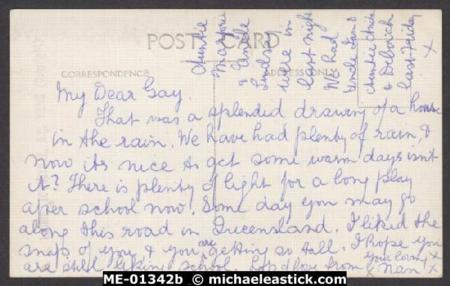 POST CARD
CORRESPONDENCE
My Dear Gay.
That was a splendid drawing of a house
in the rain. We have had plenty of rain &
now its nice to get some warm days isn't
it? There is plenty of light for a long play
after school now. Some day you may go
along this road in Queensland. I liked the
snaps of you & you are getting so tall. I hope you
are still liking school. Love from
you loving
& Nan
X
Auntie
Marjorie
& Uncle
were in
last night
We had
Uncle
Auntie
& Deborah
last Friday
X
ME-01342b © michaeleastick.com